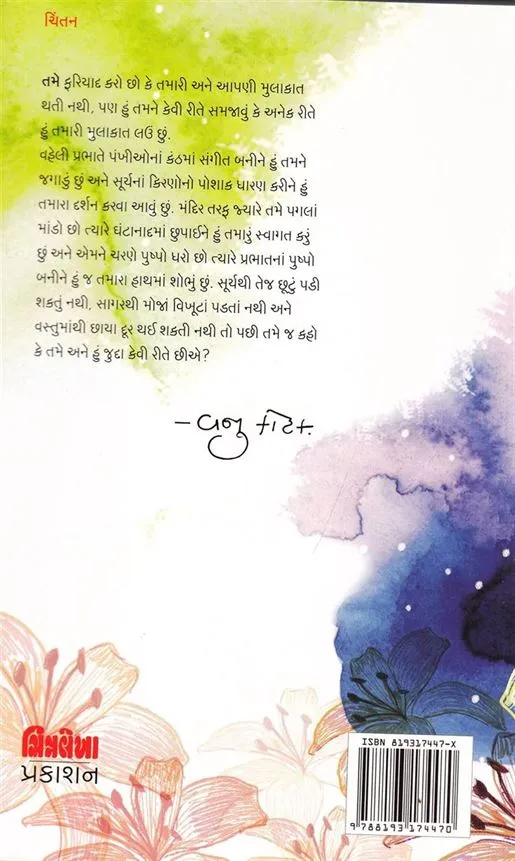 ચિંતન
તમે ફરિયાદ કરો છો કે તમારી અને આપણી મુલાકાત
થતી નથી, પણ હું તમને કેવી રીતે સમજાવું કે અનેક રીતે
હું તમારી મુલાકાત લઉં છું.
વહેલી પ્રભાતે પંખીઓનાં કંઠમાં સંગીત બનીને હું તમને
જગાડું છું અને સૂર્યનાં કિરણોનો પોશાક ધારણ કરીને હું
તમારા દર્શન કરવા આવું છું. મંદિર તરફ જ્યારે તમે પગલાં
માંડો છો ત્યારે ઘંટાનાદમાં છુપાઈને હું તમારું સ્વાગત કરું
છું અને એમને ચરણે પુષ્પો ધરો છો ત્યારે પ્રભાતનાં પુષ્પો
બનીને હું જ તમારા હાથમાં શોભું છું. સૂર્યથી તેજ છૂટું પડી
શકતું નથી, સાગરથી મોજાં વિખૂટાં પડતાં નથી અને
વસ્તુમાંથી છાયા દૂર થઈ શકતી નથી તો પછી તમે જ કહો
કે તમે અને હું જુદા કેવી રીતે છીએ?
ચિત્રલેખા
પ્રકાશન
ISBN 819317447-X
9 788193 174470